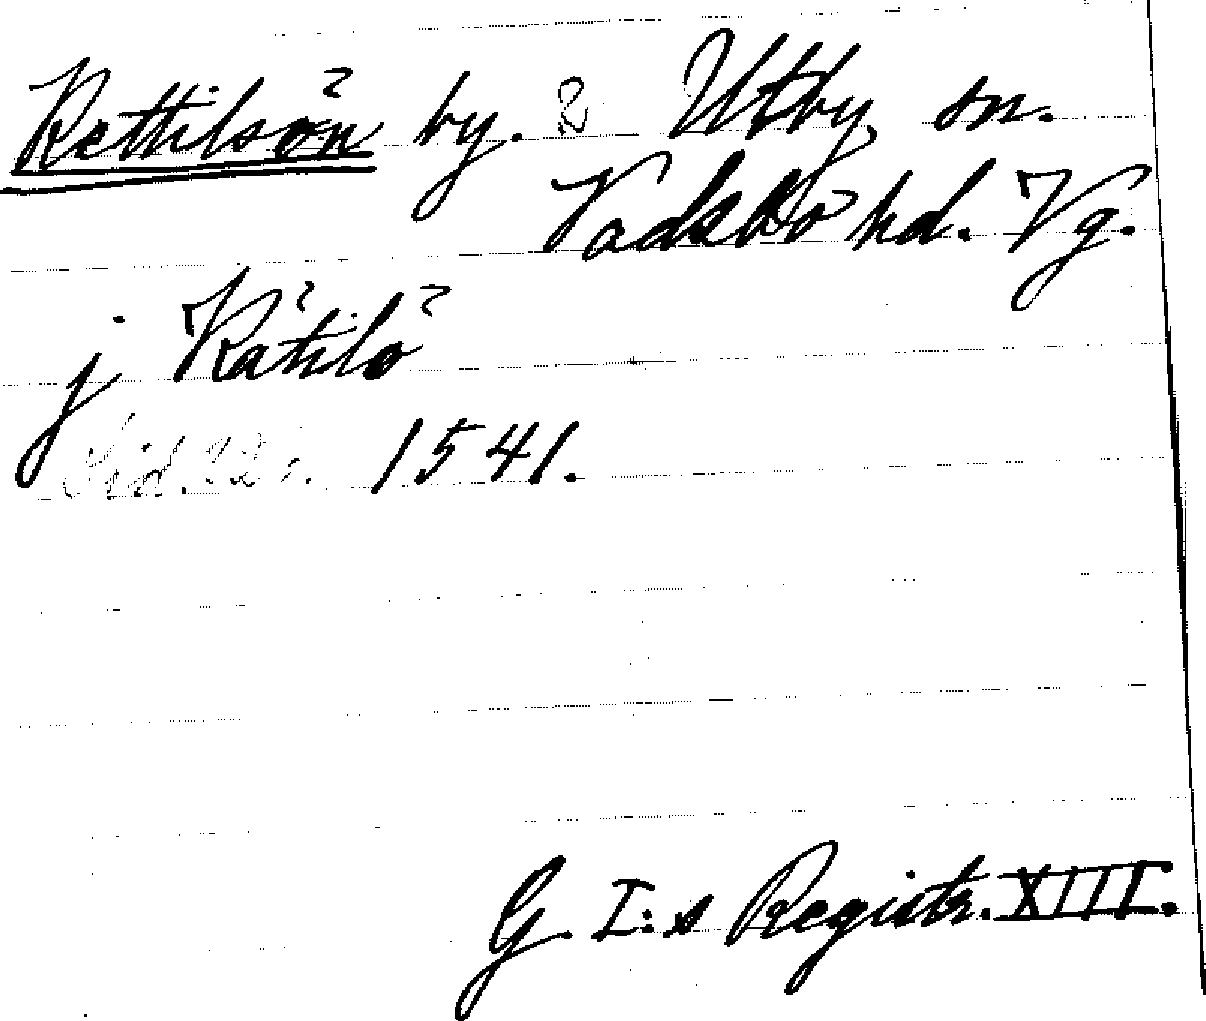 Kettilsön by. 2 Utby sn.
Vadsbo hd. Vg.
j Kätilö
Sid. 22. 1541.
G. I:s Registr. XIII.